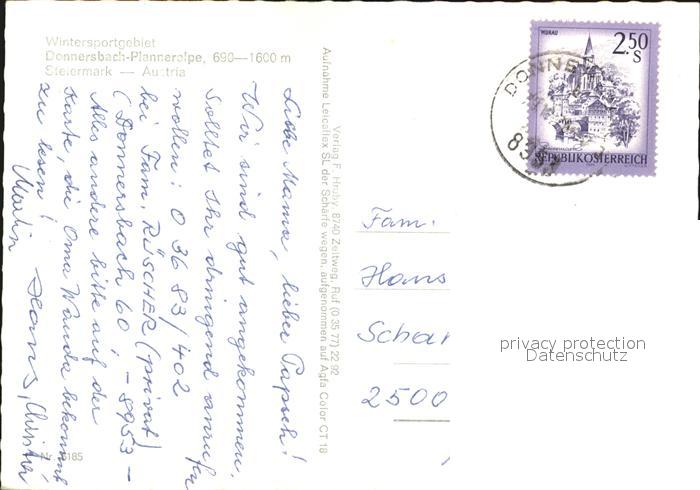 Wintersportgebiet
Donnersbach-Planneralpe, 690—1600 m
Steiermark — Austria
Liebe Mama, lieber Papsch!
Wir sind gut angekommen.
Solltet Ihr dringend anrufen
wollen: 0 36 83/402
bei Fam. RÜSCHER (privat)
(Donnersbach 60, -8953-
Alles andere bitte auf der
Karte, die Oma Wanda bekommt
zu lesen!
Martin Hans, Christer
Nr. 6185
Verlag F. Hruby, 8740 Zeltweg, Ruf (0 35 77) 22 92
Aufnahme Leicaflex SL der Schärfe wegen, aufgenommen auf Agfa Color CT 18
MURAU
2.50
S
REPUBLIK ÖSTERREICH
DONNE
8953
Fam.
Hans
Schar
2500
privacy protection
Datenschutz